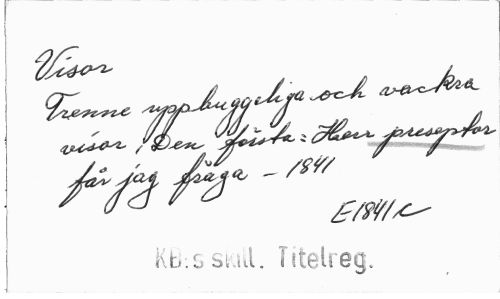 Visor
Trenne uppbuggeliga och vackra
visor, Den första: Herr preseptor
får jag fråga - 1841
E1841c
KB:s skill. Titelreg.